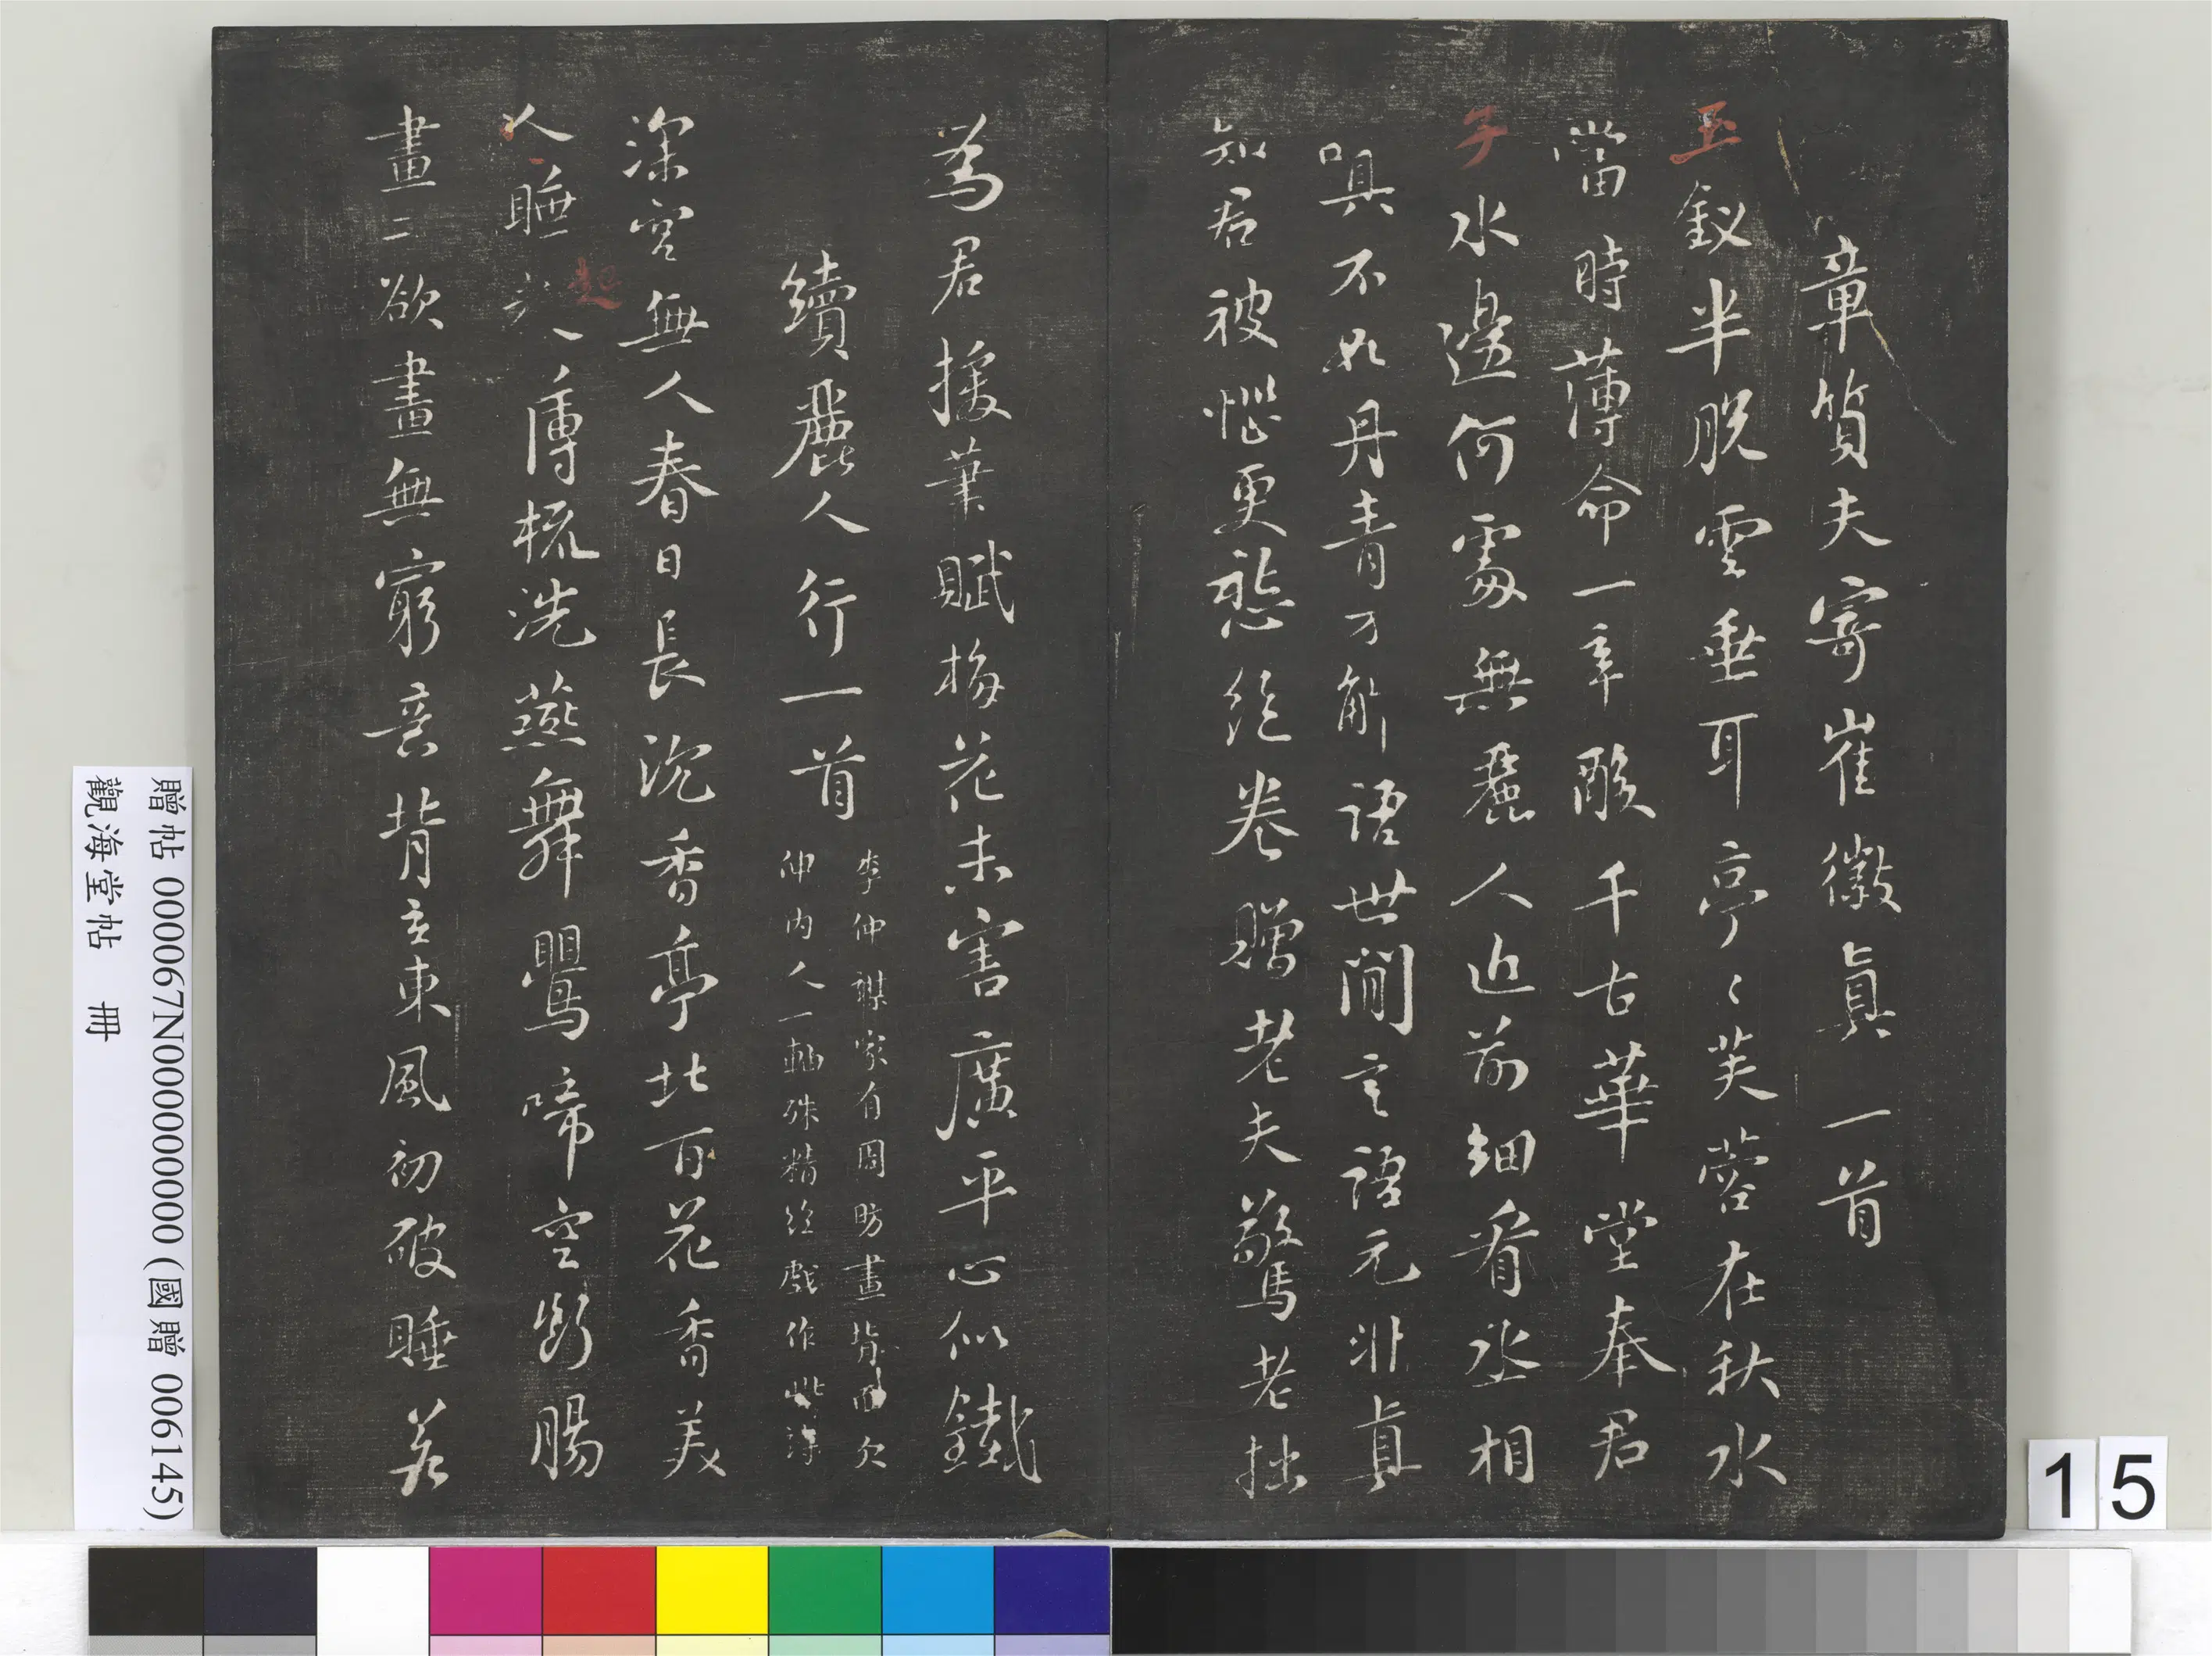 章質夫寄崔徽真一首
玉釵半脫雲垂耳亭〻芙蓉在秋水
當時薄命一辛酸千古華堂奉君
子水邊何處無麗人近前細看丞相
嗔不如丹青不解語世間言語元非真
知君被惱更愁絕卷贈老夫驚老拙
為君援筆賦梅花未害廣平心似鐵
續麗人行一首
李仲謀家有周昉畫背面欠
伸內人一軸殊精絕戲作此詩
深宮無人春日長沉香亭北百花香美
人睡起薄梳洗燕舞鶯啼空斷腸
畫工欲畫無窮意背立東風初破睡若
贈帖 000067N000000000 (國贈 006145)
觀海堂帖 冊
15